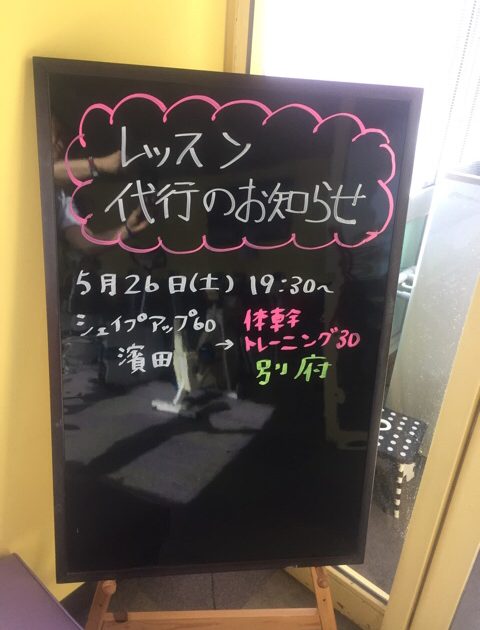 レッスン
代行のお知らせ
5月26日(土) 19:30~
シェイプアップ60
濱田
→
体幹
トレーニング30
別府